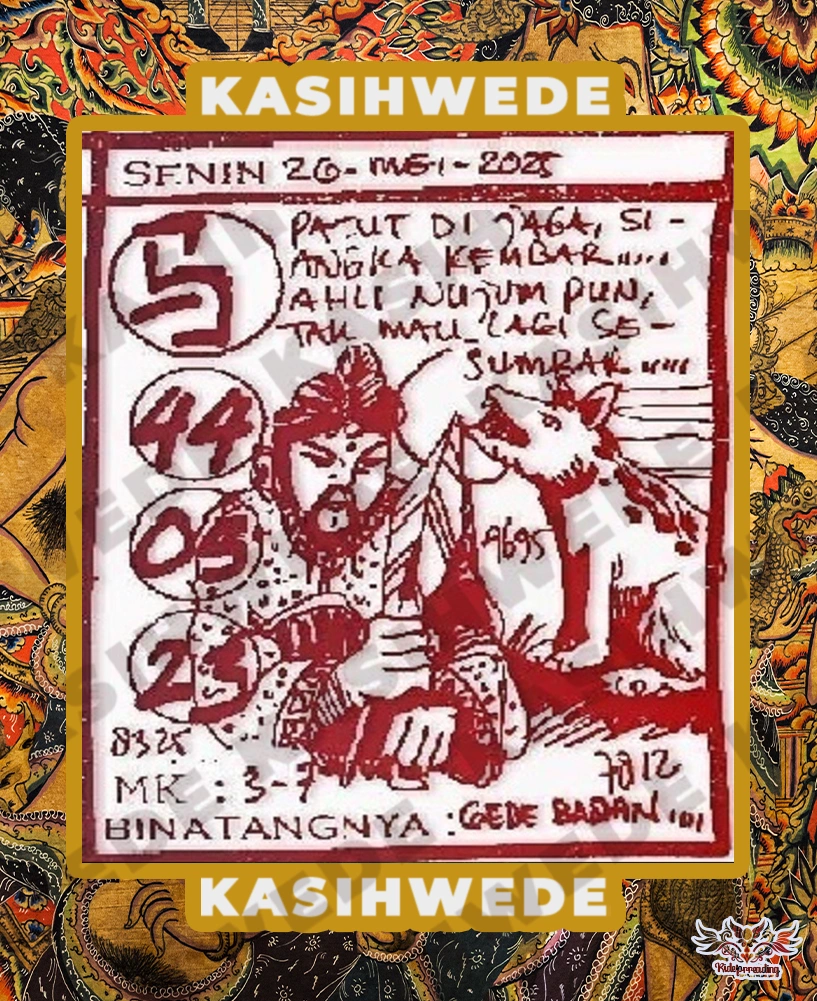 KASIHWEDE
SENIN 26-MEI-2025
5
PATUT DI JAGA, SI-
ANGKA KEMBAR.....
AHLI NUJUM PUN,
TAK MAU LAGI SE-
SUMBAR.....
44
05
25
9695
8325
7812
MK : 3-7
BINATANGNYA : GEDE BADAN....
KASIHWEDE